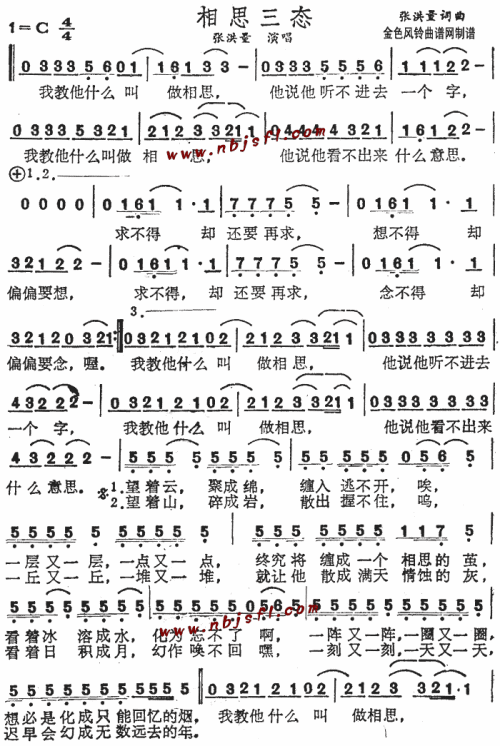 相思三态
1=C 4/4
张洪量 演唱
张洪量 词曲
金色风铃曲谱网制谱
0 3 3 3 5 6 0 1 | 1 6 1 3 3 – | 0 3 3 3 3 3 3 3 | 1 1 1 2 2 – |
我教他什么 叫 做相思, 他说他听不进去 一个 字,
0 3 3 3 5 3 2 1 | 2 1 2 3 3 2 1 1 | 0 4 4 4 4 4 3 | 6 1 2 2 – |
我教他什么叫做 相 思, 他说他看不出来 什么意思。
www.nbjsfl.com
1.2.
0 0 0 0 | 0 1 6 1 1 · 1 | 7 7 7 5 5 – | 0 1 6 1 1 · 1 |
求不得 却 还要再求, 想不得 却
3 2 1 2 2 – | 0 1 6 1 1 · 1 | 7 7 7 5 5 – | 0 1 6 1 1 · 1 |
偏偏要想, 求不得, 却 还要再求, 念不得 却
3.
3 2 1 2 0 3 2 1 :| 0 3 2 1 2 1 0 2 | 2 1 2 3 3 – | 0 3 3 3 3 3 3 3 |
偏偏要念,喔。 我教他什么 叫 做相思, 他说他听不进去
4 3 2 2 2 – | 0 3 2 1 2 1 0 2 | 2 1 2 3 3 2 1 1 | 0 3 3 3 3 3 3 3 |
一个 字, 我教他什么 叫 做相思, 他说他看不出来
4 3 2 2 2 – | 5 5 5 5 5 5 | 5 5 5 5 5 5 |
什么意思。 1.望着云, 聚成绵, 缠入 逃不开, 唉,
2.望着山, 碎成岩, 散出 握不住, 呜,
5 5 5 5 5 5 5 5 | 5 5 5 5 5 5 5 5 | 1 1 7 5 |
一层又一层,一点又一点, 终究将 缠成一个 相思的 茧,
一丘又一丘,一堆又一堆, 就让他 散成满天 惰蚀的 灰,
看着冰 溶成水, 化为 忘不了 啊, 一阵又一阵,一圈又一圈,
看着日 积成月, 幻作 唤不回 嘿, 一刻又一刻,一天又一天,
www.nbjsfl.com
5 5 5 5 5 5 5 5 5 5 5 5 | 0 3 2 1 2 1 0 2 | 2 1 2 3 3 2 1 · 1 |
想必是化成只能回忆的烟, 我教他什么 叫 做相思,
迟早会幻成无数远去的年。